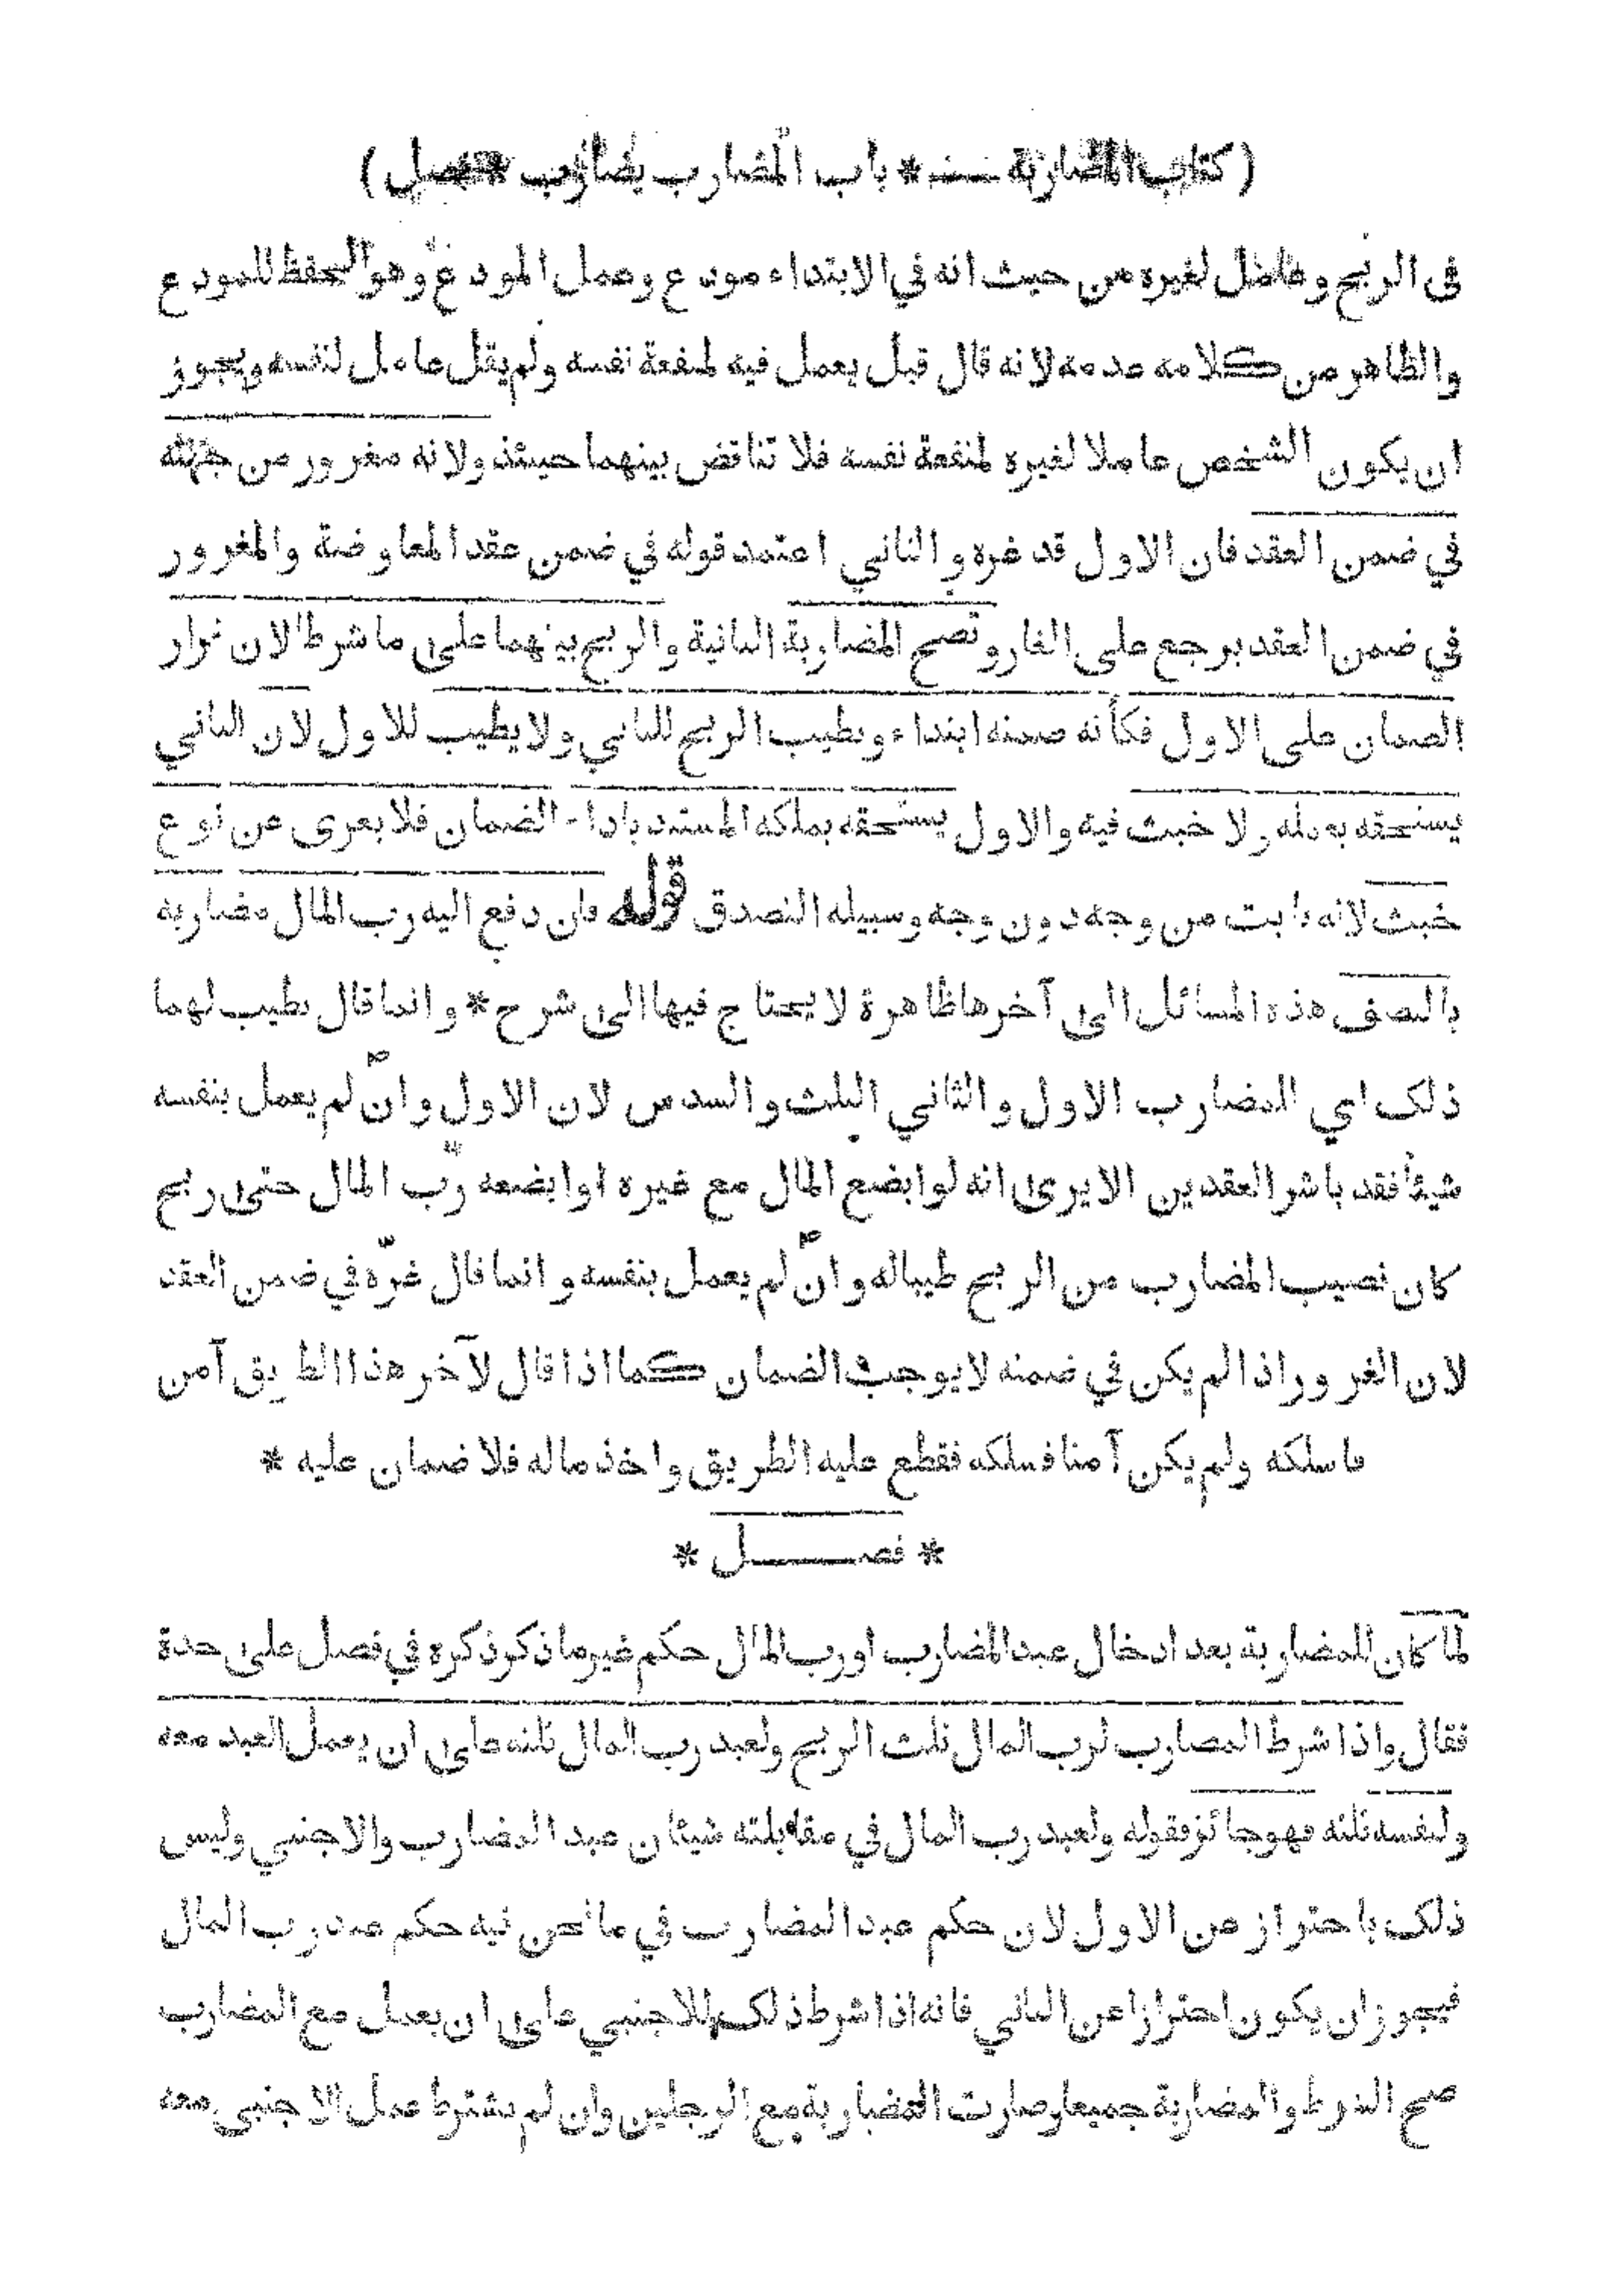 ( كتاب المضاربة * باب المضارب يضارب * فصل )
فى الربح وعامل لغيره من حيث انه في الابتداء مودع وعمل المودع وهو الحفظ للمودع
والظاهر من كلامه عدمه لانه قال قبل يعمل فيه لمنفعة نفسه ولم يقل عامل لنفسه ويجوز
ان يكون الشخص عاملا لغيره لمنفعة نفسه فلا تناقض بينهما حينئذ ولانه مغرور من جهته
في ضمن العقد فان الاول قد غره والثاني اعتمد قوله في ضمن عقد المعاوضة والمغرور
في ضمن العقد يرجع على الغار وتصح المضاربة الثانية والربح بينهما على ما شرطا لان قرار
الضمان على الاول فكأنه ضمنه ابتداء ويطيب الربح للثاني ولا يطيب للاول لان الثاني
يستحقه بعمله ولا خبث فيه والاول يستحقه بملكه المستند باداء الضمان فلا يعرى عن نوع
خبث لانه ثابت من وجه دون وجه وسبيله التصدق قوله فان دفع اليه رب المال مضاربة
بالنصف هذه المسائل الى آخرها ظاهرة لا يحتاج فيها الى شرح * وانما قال يطيب لهما
ذلك اي المضارب الاول والثاني الثلث والسدس لان الاول وان لم يعمل بنفسه
شيئا فقد باشر العقدين الا يرى انه لو ابضع المال مع غيره او ابضعه رب المال حتى ربح
كان نصيب المضارب من الربح طيبا له وان لم يعمل بنفسه وانما قال غرّه في ضمن العقد
لان الغرور اذا لم يكن في ضمنه لا يوجب الضمان كما اذا قال لآخر هذا الطريق آمن
فاسلكه ولم يكن آمنا فسلكه فقطع عليه الطريق واخذ ماله فلا ضمان عليه *
* فصل *
لما كان للمضاربة بعد ادخال عبد المضارب او رب المال حكم غير ما ذكر ذكره في فصل على حدة
فقال واذا شرط المضارب لرب المال ثلث الربح ولعبد رب المال ثلثه على ان يعمل العبد معه
ولنفسه ثلثه فهو جائز فقوله ولعبد رب المال في مقابلته شيئان عبد المضارب والاجنبي وليس
ذلك باحتراز عن الاول لان حكم عبد المضارب في ما نحن فيه حكم عبد رب المال
فيجوز ان يكون احترازا عن الثاني فانه اذا شرط ذلك للاجنبي على ان يعمل مع المضارب
صح الشرط والمضاربة جميعا وصارت المضاربة مع الرجلين وان لم يشترط عمل الاجنبي معه